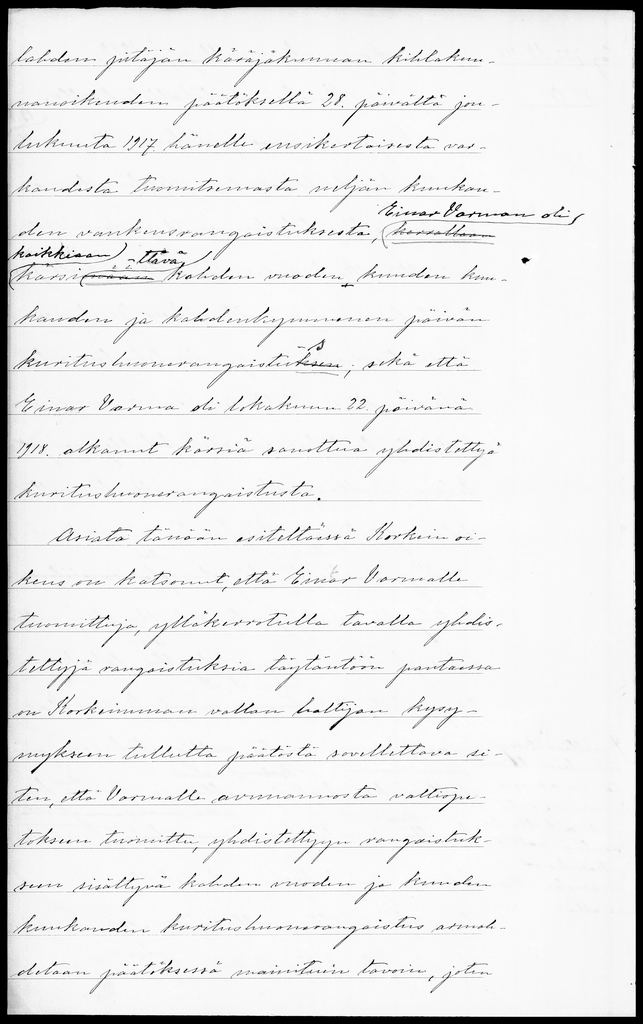 lahden pitäjän käräjäkunnan kihlakun-
nanoikeuden päätöksellä 28. päivältä jou-
lukuuta 1917 hänelle ensikertaisesta var-
kaudesta tuomitsemasta neljän kuukau-
den vankeusrangaistuksesta, Einar Varman oli
kaikkiaan kärsi -ttävä kahden vuoden, kuuden kuu-
kauden ja kahdenkymmenen päivän
kuritushuonerangaistus; sekä että
Einar Varma oli lokakuun 22. päivänä
1918. alkanut kärsiä sanottua yhdistettyä
kuritushuonerangaistusta.
Asiata tänään esiteltäessä Korkein oi-
keus on katsonut, että Einar Varmalle
tuomittuja, ylläkerrotulla tavalla yhdis-
tettyjä rangaistuksia täytäntöön pantaessa
on Korkeimman vallan haltijan kysy-
mykseen tullutta päätöstä sovellettava si-
ten, että Varmalle avunannosta valtiope-
tokseen tuomittu, yhdistettyyn rangaistuk-
seen sisältyvä kahden vuoden ja kuuden
kuukauden kuritushuonerangaistus armah-
detaan päätöksessä mainituin tavoin, joten